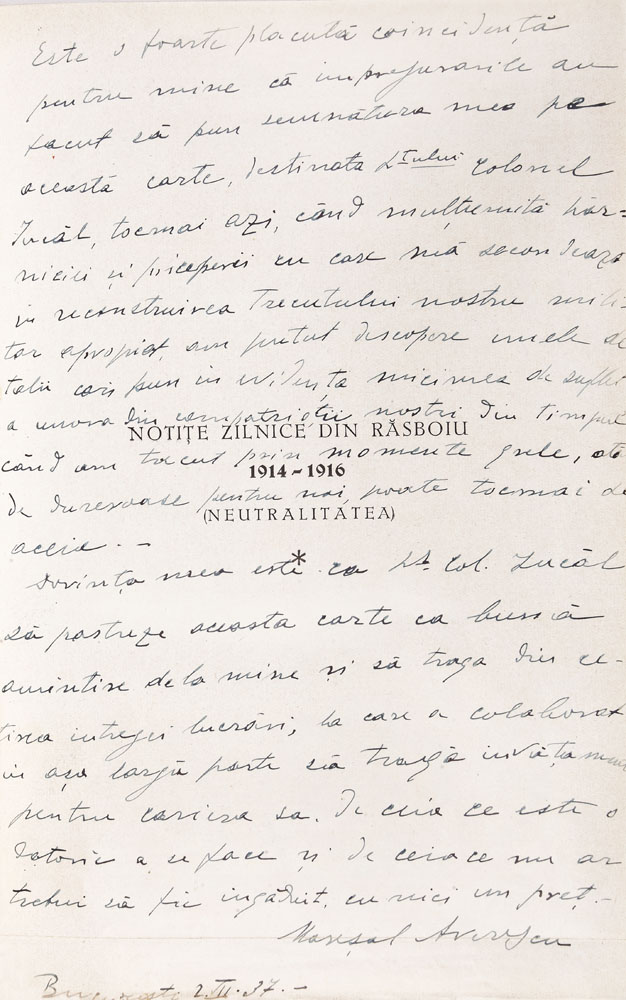 Este o foarte placută coincidență
pentru mine că imprejurarile au
facut să pun semnătura mea pe
această carte, destinata Lt.ului Colonel
tocmai azi, când mulțumită hăr-
niciei și priceperii cu care mă secondeaza
in reconstruirea Trecutului nostru mili-
tar apropiat, am putut descopere unele de
talii cari pun in evidența micimea de suflet
a unora din compatrioții nostri din timpul
NOTIȚE ZILNICE DIN RĂSBOIU
când am trecut prin momente grele, atât
1914-1916
de dureroase pentru noi, poate tocmai de
(NEUTRALITATEA)
aceia. -
*
Dorința mea este ca Lt. Col.
să pastreze aceasta carte ca bună
amintire de la mine și să traga din ce-
tirea intregei lucrări, la care a colaborat
in așa largă parte să tragă invătăminte
pentru cariera sa. De ceia ce este o
datorie a se face și de ceiace nu ar
trebui să fie ingăduit, cu nici un preț. -
Mareșal Averescu
București 2.III.37. -